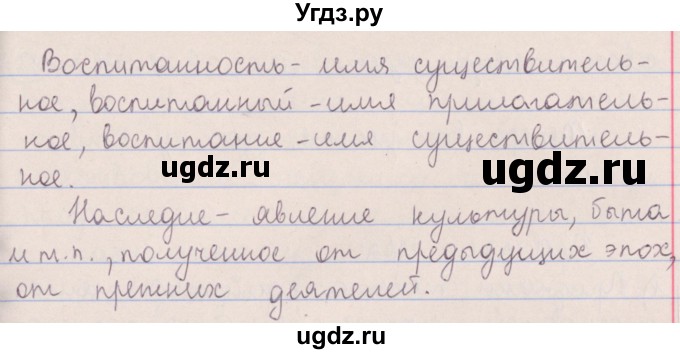 Угдз.ру
Воспитанность - имя существитель-
ное, воспитанный - имя прилагатель-
ное, воспитание - имя существитель-
ное.
ugdz.ru
ugdz.ru
Наследие - явление культуры, быта
и т.п., полученное от предыдущих эпох,
от прежних деятелей.
ugdz.ru